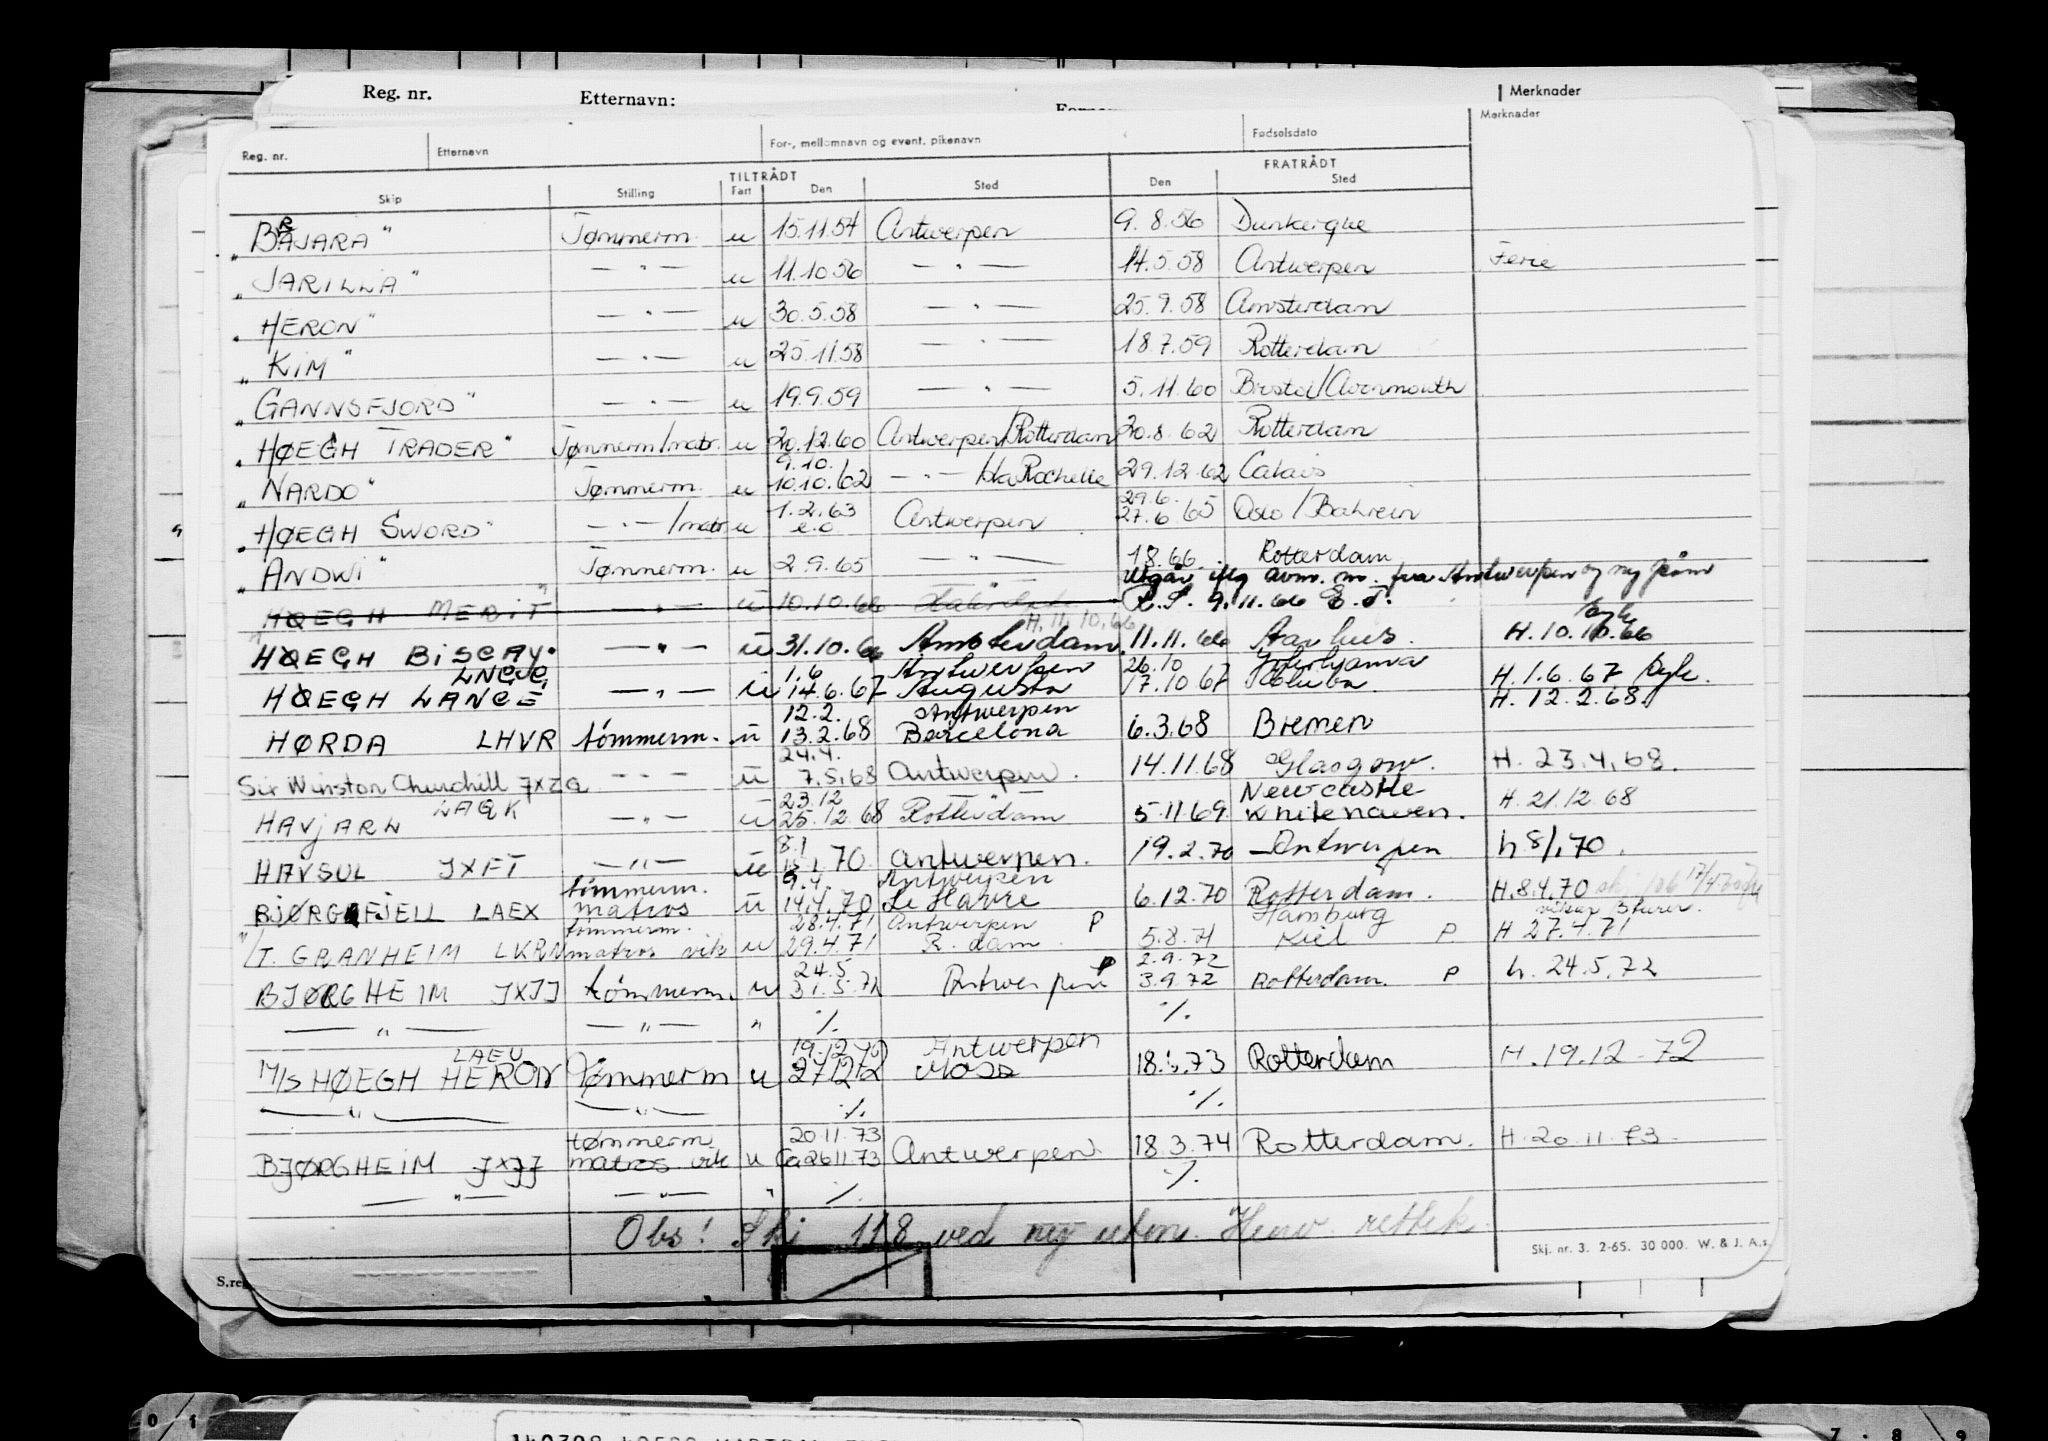 Reg. nr. Etternavn: Merknader
Reg. nr. Etternavn For-, mellomnavn og event. pikenavn Fødselsdato Merknader
TILTRÅDT FRATRÅDT
Skip Stilling Fart Den Sted Den Sted
" BAJARA " Tømmerm. u 15.11.54 Antwerpen 9.8.56 Dunkerque
" JARILLA " — " — u 11.10.56 — " — 14.5.58 Antwerpen Ferie
" HERON " — " — u 30.5.58 — " — 25.9.58 Amsterdam
" KIM " — " — u 25.11.58 — " — 18.7.59 Rotterdam
" GANNSFJORD " — " — u 19.9.59 — " — 5.11.60 Bristol/Avonmouth
" HØEGH TRADER " Tømmerm/matr. u 20.12.60 Antwerpen/Rotterdam 20.8.62 Rotterdam
9.10.
" NARDO " Tømmerm. u 10.10.62 — " — /La Rochelle 29.12.62 Calais
1.2.63 29.6.
" HØEGH SWORD " — " — /matr u e.o Antwerpen 27.6.65 Oslo/Bahrein
" ANDWI " Tømmerm. u 2.9.65 — " — 1.8.66 Rotterdam
Utgår iflg avm. m. fra Antwerpen og ny
HØEGH MERIT " — " — u 10.10.66 9.11.66
H. 11.10.66
HØEGH BISCAY " — " — u 31.10.66 Amsterdam 11.11.66 Aarhus. H. 10.10.66
LNGG 1.6 Antwerpen 26.10
HØEGH LANCE — " — u 14.6.67 Augusta 17.10 67 H. 1.6.67
12.2. Antwerpen H. 12.2.68.
HØRDA LHVR tømmerm. u 13.2.68 Barcelona 6.3.68 Bremen
24.4.
Sir Winston Churchill JXZA — " — u 7.5.68 Antwerpen. 14.11.68 Glasgow. H. 23.4.68.
LAQK 23.12 Newcastle
HAVJARL — " — u 25.12.68 Rotterdam 5.11.69 Whitehaven. H. 21.12.68
8.1
HAVSUL JXFT — " — u 70 Antwerpen. 19.2.70 Antwerpen h 8/1 70.
tømmerm. 9.4. Antwerpen
BJØRGFJELL LAEX matros u 14.4.70 Le Havre 6.12.70 Rotterdam. H. 8.4.70
tømmerm. 28.4.71 Antwerpen P Hamburg
T. GRANHEIM LKRN matros vik u 29.4.71 R.dam 5.8.71 Kiel P H 27.4.71
24.5 2.9.72
BJØRGHEIM JXJJ tømmerm. u 31.5.72 Antwerpen P 3.9.72 Rotterdam. P h. 24.5.72
— " — — " — " ./. ./.
LAEU 19.12.72 Antwerpen
M/S HØEGH HERON Tømmerm u 27.12.72 Moss 18.1.73 Rotterdam H. 19.12-72
— " — — " — ./. ./.
tømmerm 20.11.73
BJØRGHEIM JXJJ matros vik u Ca 26.11.73 Antwerpen 18.3.74 Rotterdam. H. 20.11.73.
— " — — " — " ./. ./.
Obs! Skj. 118 ved ny utm.
Skj. nr. 3. 2-65. 30 000. W. & J. A.s.
0 1 7 8 9